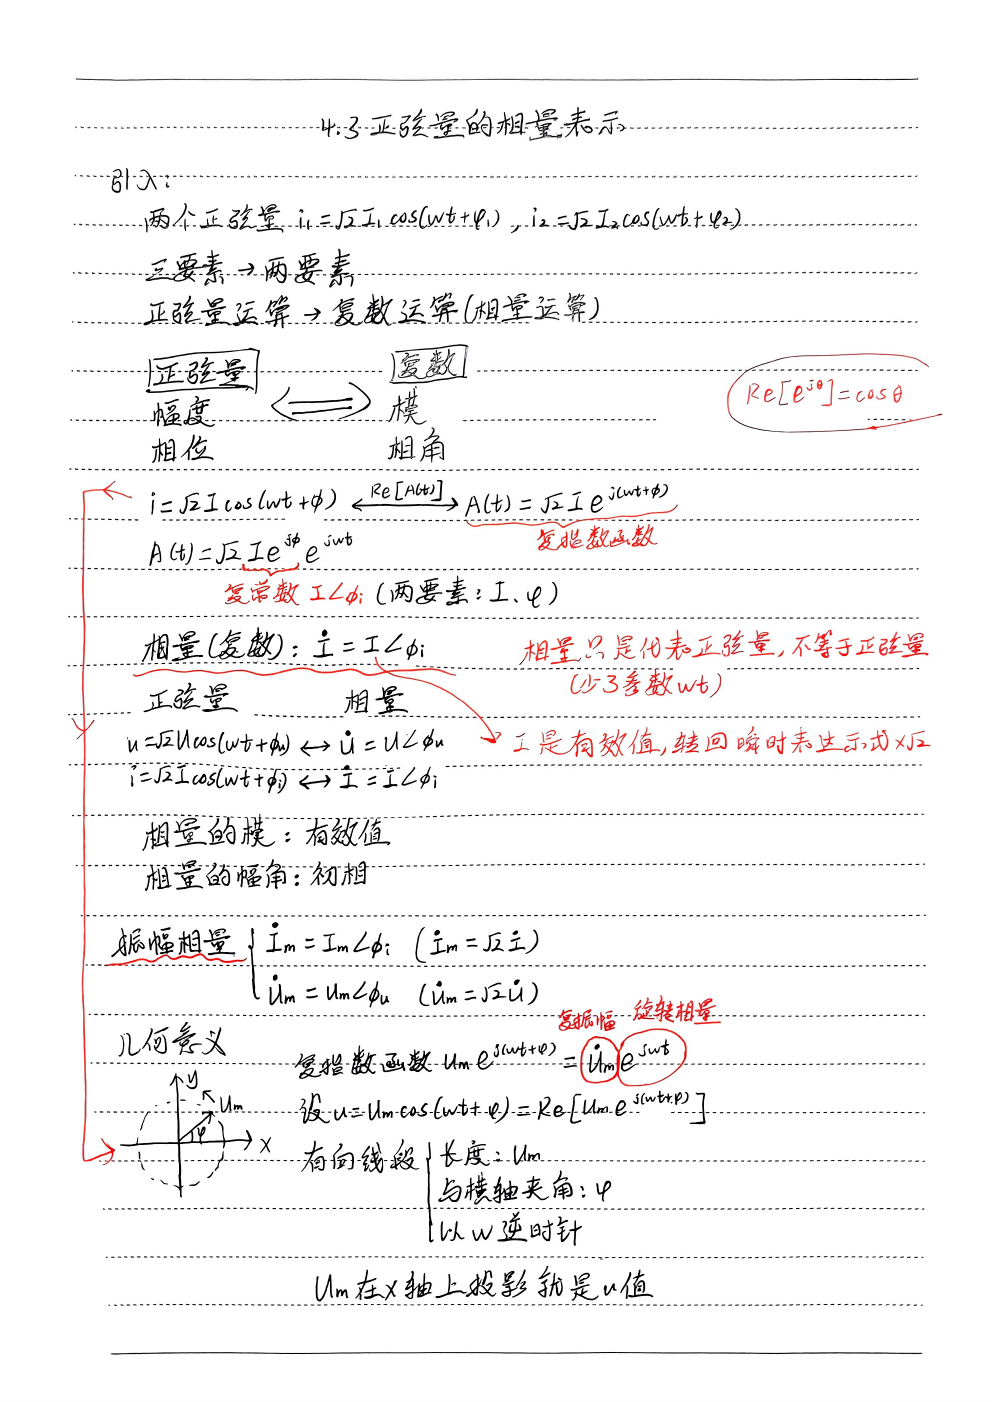 4.3 正弦量的相量表示
引入:
两个正弦量 i₁=√2I₁cos(wt+φ₁), i₂=√2I₂cos(wt+φ₂)
三要素→两要素
正弦量运算→复数运算(相量运算)
正弦量 复数
幅度 ⟺ 模
相位 相角
Re[e^{jθ}]=cosθ
i=√2Icos(wt+ϕ) ⟷ Re[A(t)] A(t)=√2Ie^{j(wt+ϕ)}
复指数函数
A(t)=√2Ie^{jϕ}e^{jwt}
复常数 I∠ϕi (两要素:I、φ)
相量(复数): İ=I∠ϕi
相量只是代表正弦量,不等于正弦量
(少了参数wt)
正弦量 相量
u=√2Ucos(wt+ϕu)↔U̇=U∠ϕu
I是有效值,转回瞬时表达示式×√2
i=√2Icos(wt+ϕi)↔İ=I∠ϕi
相量的模:有效值
相量的幅角:初相
振幅相量 { İm=Im∠ϕi (İm=√2İ)
U̇m=Um∠ϕu (U̇m=√2U̇)
几何意义
复振幅 旋转相量
复指数函数 Um e^{j(wt+φ)}=U̇m e^{jwt}
y Um φ x
设u=Um cos(wt+φ)=Re[Um e^{j(wt+φ)}]
有向线段 { 长度:Um
与横轴夹角:φ
以w逆时针
Um在x轴上投影就是u值